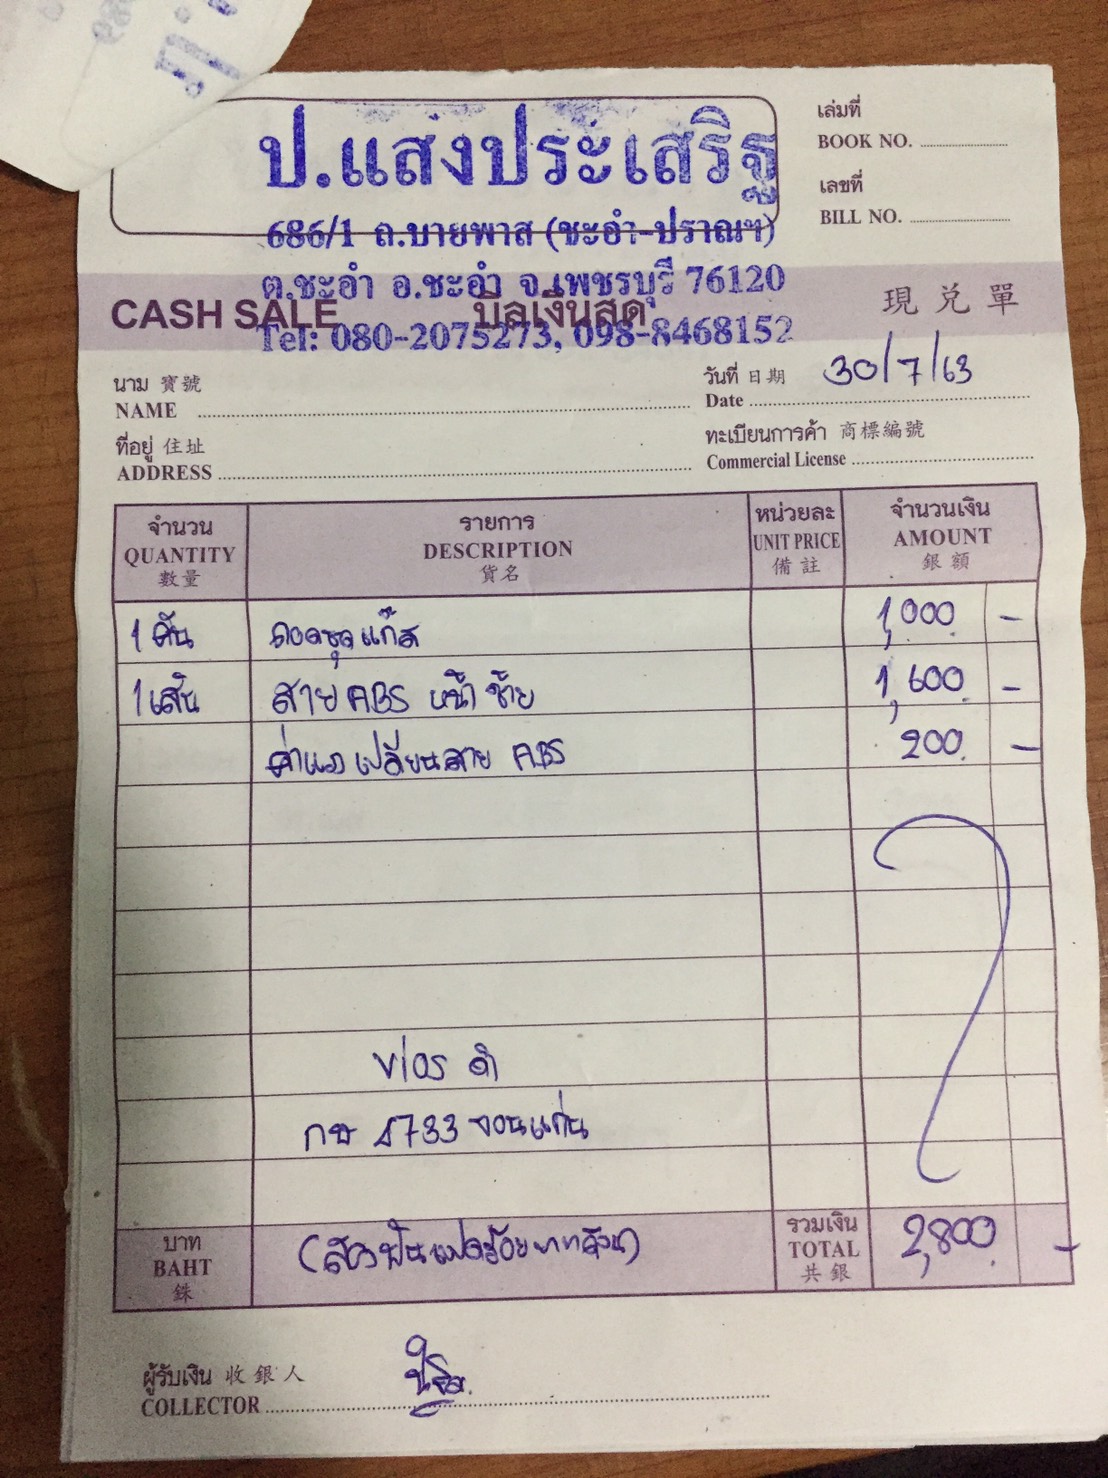 ป.แสงประเสริฐ
686/1 ถ.บายพาส (ชะอำ-ปราณฯ)
ต.ชะอำ อ.ชะอำ จ.เพชรบุรี 76120
Tel: 080-2075273, 098-8468152
เล่มที่
BOOK NO.
เลขที่
BILL NO.
CASH SALE บิลเงินสด 現兌單
นาม 寶號
NAME
วันที่ 日期 30/7/63
Date
ที่อยู่ 住址
ADDRESS
ทะเบียนการค้า 商標編號
Commercial License
จำนวน รายการ หน่วยละ จำนวนเงิน
QUANTITY DESCRIPTION UNIT PRICE AMOUNT
數量 貨名 備註 銀額
1 คัน ถอดชุดแก๊ส 1,000 -
1 เส้น สาย ABS หน้าซ้าย 1,600 -
ค่าแรงเปลี่ยนสาย ABS 200 -
Vios ดำ
1733 ขอนแก่น
บาท (สองพันแปดร้อยบาทถ้วน) รวมเงิน 2,800 -
BAHT TOTAL
銖 共銀
ผู้รับเงิน 收銀人
COLLECTOR